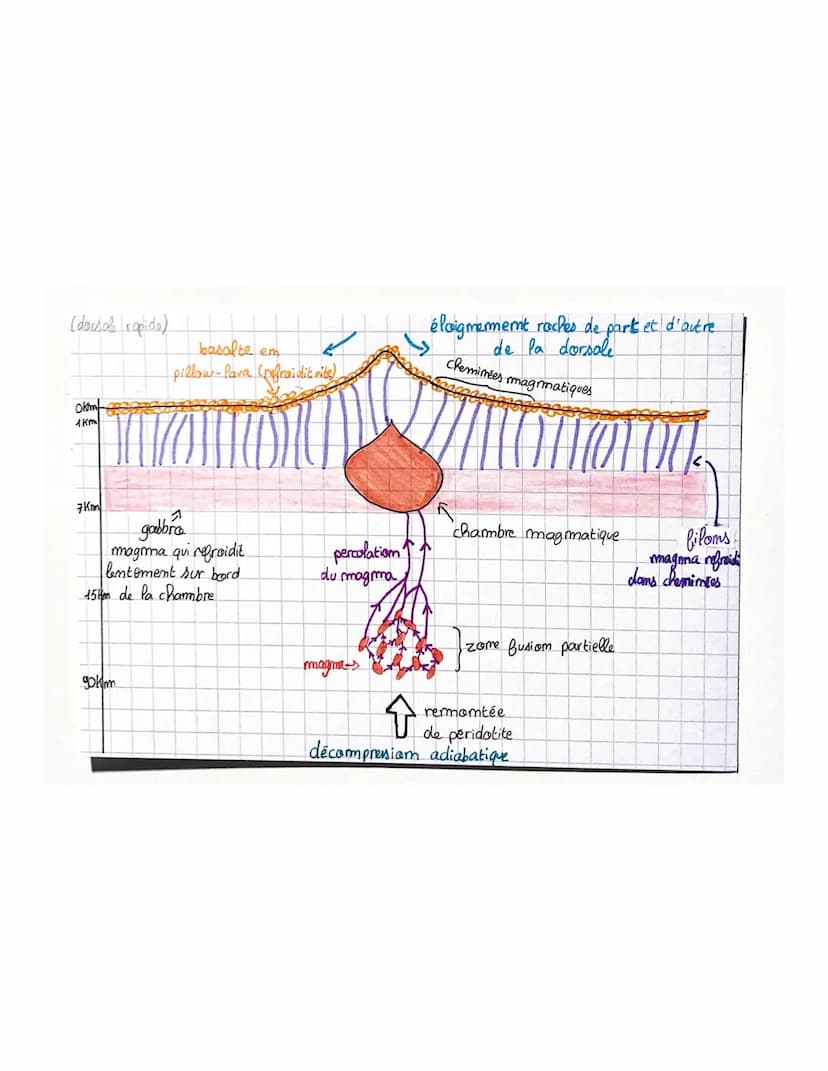 (dorsale rapide)
éloignement roches de part et d'autre
de la dorsale
basalte en
pillow-lava (refroidit vite)
cheminées magmatiques
0km
1km
7km
gabbro
magma qui refroidit
lentement sur bord
de la chambre
chambre magmatique
filons
magma refroidi
dans cheminées
percolation
du magma
15km
zone fusion partielle
magma
90km
remontée
de peridotite
décompression adiabatique